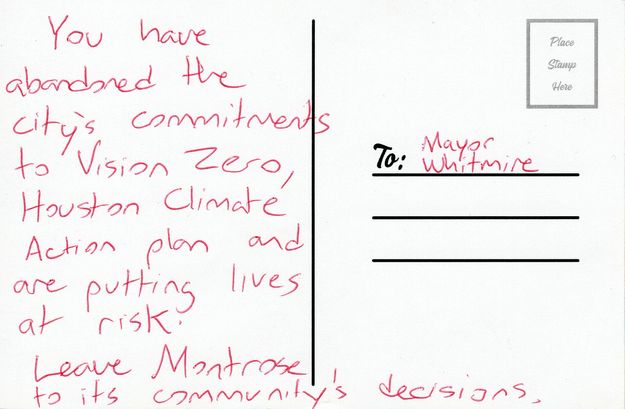 You have
abandoned the
city's commitments
to Vision Zero,
Houston Climate
Action plan and
are putting lives
at risk.
Leave Montrose
to its community's decisions.
Place
Stamp
Here
To: Mayor
Whitmire